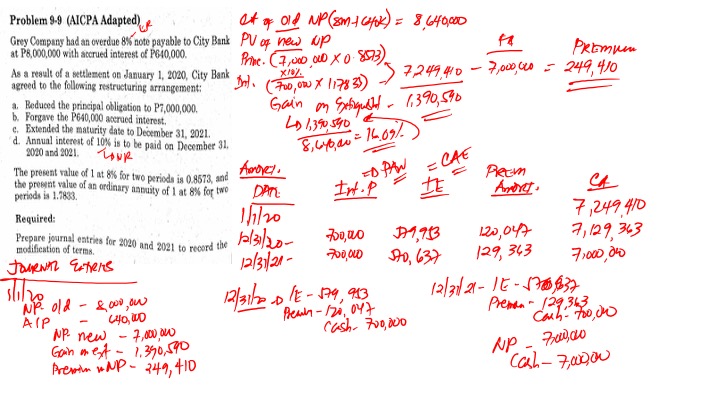 Problem 9-9 (AICPA Adapted)
Grey Company had an overdue 8% note payable to City Bank
at P8,000,000 with accrued interest of P640,000.
As a result of a settlement on January 1, 2020, City Bank
agreed to the following restructuring arrangement:
a. Reduced the principal obligation to P7,000,000.
b. Forgave the P640,000 accrued interest.
c. Extended the maturity date to December 31, 2021.
d. Annual interest of 10% is to be paid on December 31,
2020 and 2021.
The present value of 1 at 8% for two periods is 0.8573, and
the present value of an ordinary annuity of 1 at 8% for two
periods is 1.7833.
Required:
Prepare journal entries for 2020 and 2021 to record the
modification of terms.
Journal Entries
1/1/20
NP old - 8,000,000
AIP - 640,000
NP new - 7,000,000
Gain on ext - 1,390,590
Premium on NP - 249,410
CA of Old NP (8m + 640k) = 8,640,000
PV of new NP
Prin. (7,000,000 x 0.8573)
x10%
Int. (700,000 x 1.7833)
7,249,410 - 7,000,000 = 249,410
Premium
Gain on Extinguish - 1,390,590
1,390,590
8,640,000 = 16.09%
Amort.
Date Int. P IE Prem Amort. CA
1/1/20 7,249,410
12/31/20 - 700,000 579,953 120,047 7,129,363
12/31/21 - 700,000 570,637 129,363 7,000,000
12/31/20 IE - 579,953
Premium - 120,047
Cash - 700,000
12/31/21 - IE - 570,637
Premium - 129,363
Cash - 700,000
NP - 7,000,000
Cash - 7,000,000